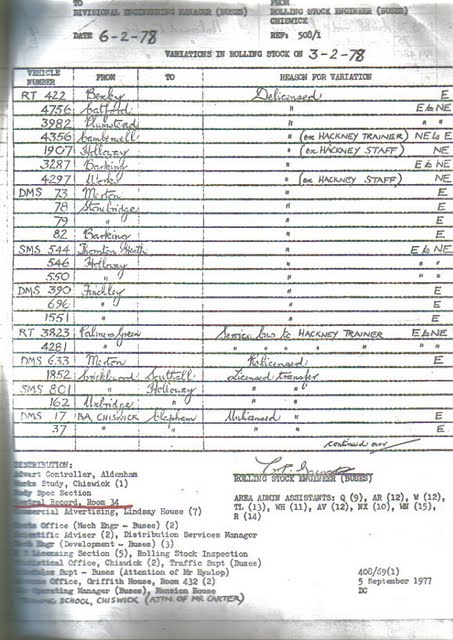 TO FROM
DIVISIONAL ENGINEERING MANAGER (BUSES) ROLLING STOCK ENGINEER (BUSES)
CHISWICK
DATE 6-2-78 REF: 508/1
VARIATIONS IN ROLLING STOCK ON 3-2-78
VEHICLE NUMBER FROM TO REASON FOR VARIATION
RT 422 Bexley Delicensed E
4756 Catford " E to NE
3982 Plumstead " " "
4356 Camberwell " (ex HACKNEY TRAINER) NE to E
1907 Holloway " (ex HACKNEY STAFF) NE
3287 Barking " E to NE
4297 Works " (ex HACKNEY STAFF) NE
DMS 73 Merton " E
78 Stonebridge " E
79 " " E
82 Barking " E
SMS 544 Thornton Heath " E to NE
546 Holloway " " "
550 " " " "
DMS 390 Finchley " E
696 " " E
1551 " " E
RT 3823 Palmers Green Service bus to HACKNEY TRAINER E to NE
4281 " " " " " " " "
DMS 633 Merton Relicensed E
1852 Cricklewood Southall Licensed transfer
SMS 801 " Holloway "
162 Uxbridge " "
DMS 17 BA, CHISWICK Clapham Unlicensed " E
37 " " " " E
continued over
DISTRIBUTION:
Advert Controller, Aldenham
Works Study, Chiswick (1)
Body Spec Section
Central Record, Room 34
Commercial Advertising, Lindsay House (7)
ROLLING STOCK ENGINEER (BUSES)
AREA ADMIN ASSISTANTS: Q (9), AR (12), W (12)
TL (13), WH (11), AV (12), NX (10), WN (15),
R (14)
Office (Mech Engr - Buses) (2)
Scientific Adviser (2), Distribution Services Manager
Engr (Development - Buses) (3)
Licensing (5), Rolling Stock Inspection
Office, Chiswick (2), Traffic Supt (Buses)
Supt - Buses (Attention of Mr Hyslop)
Office, Griffith House, Room 432 (2)
Operating Manager (Buses), Mansion House
SCHOOL, CHISWICK (ATTN. OF MR CARTER)
408/69(1)
5 September 1977
DC